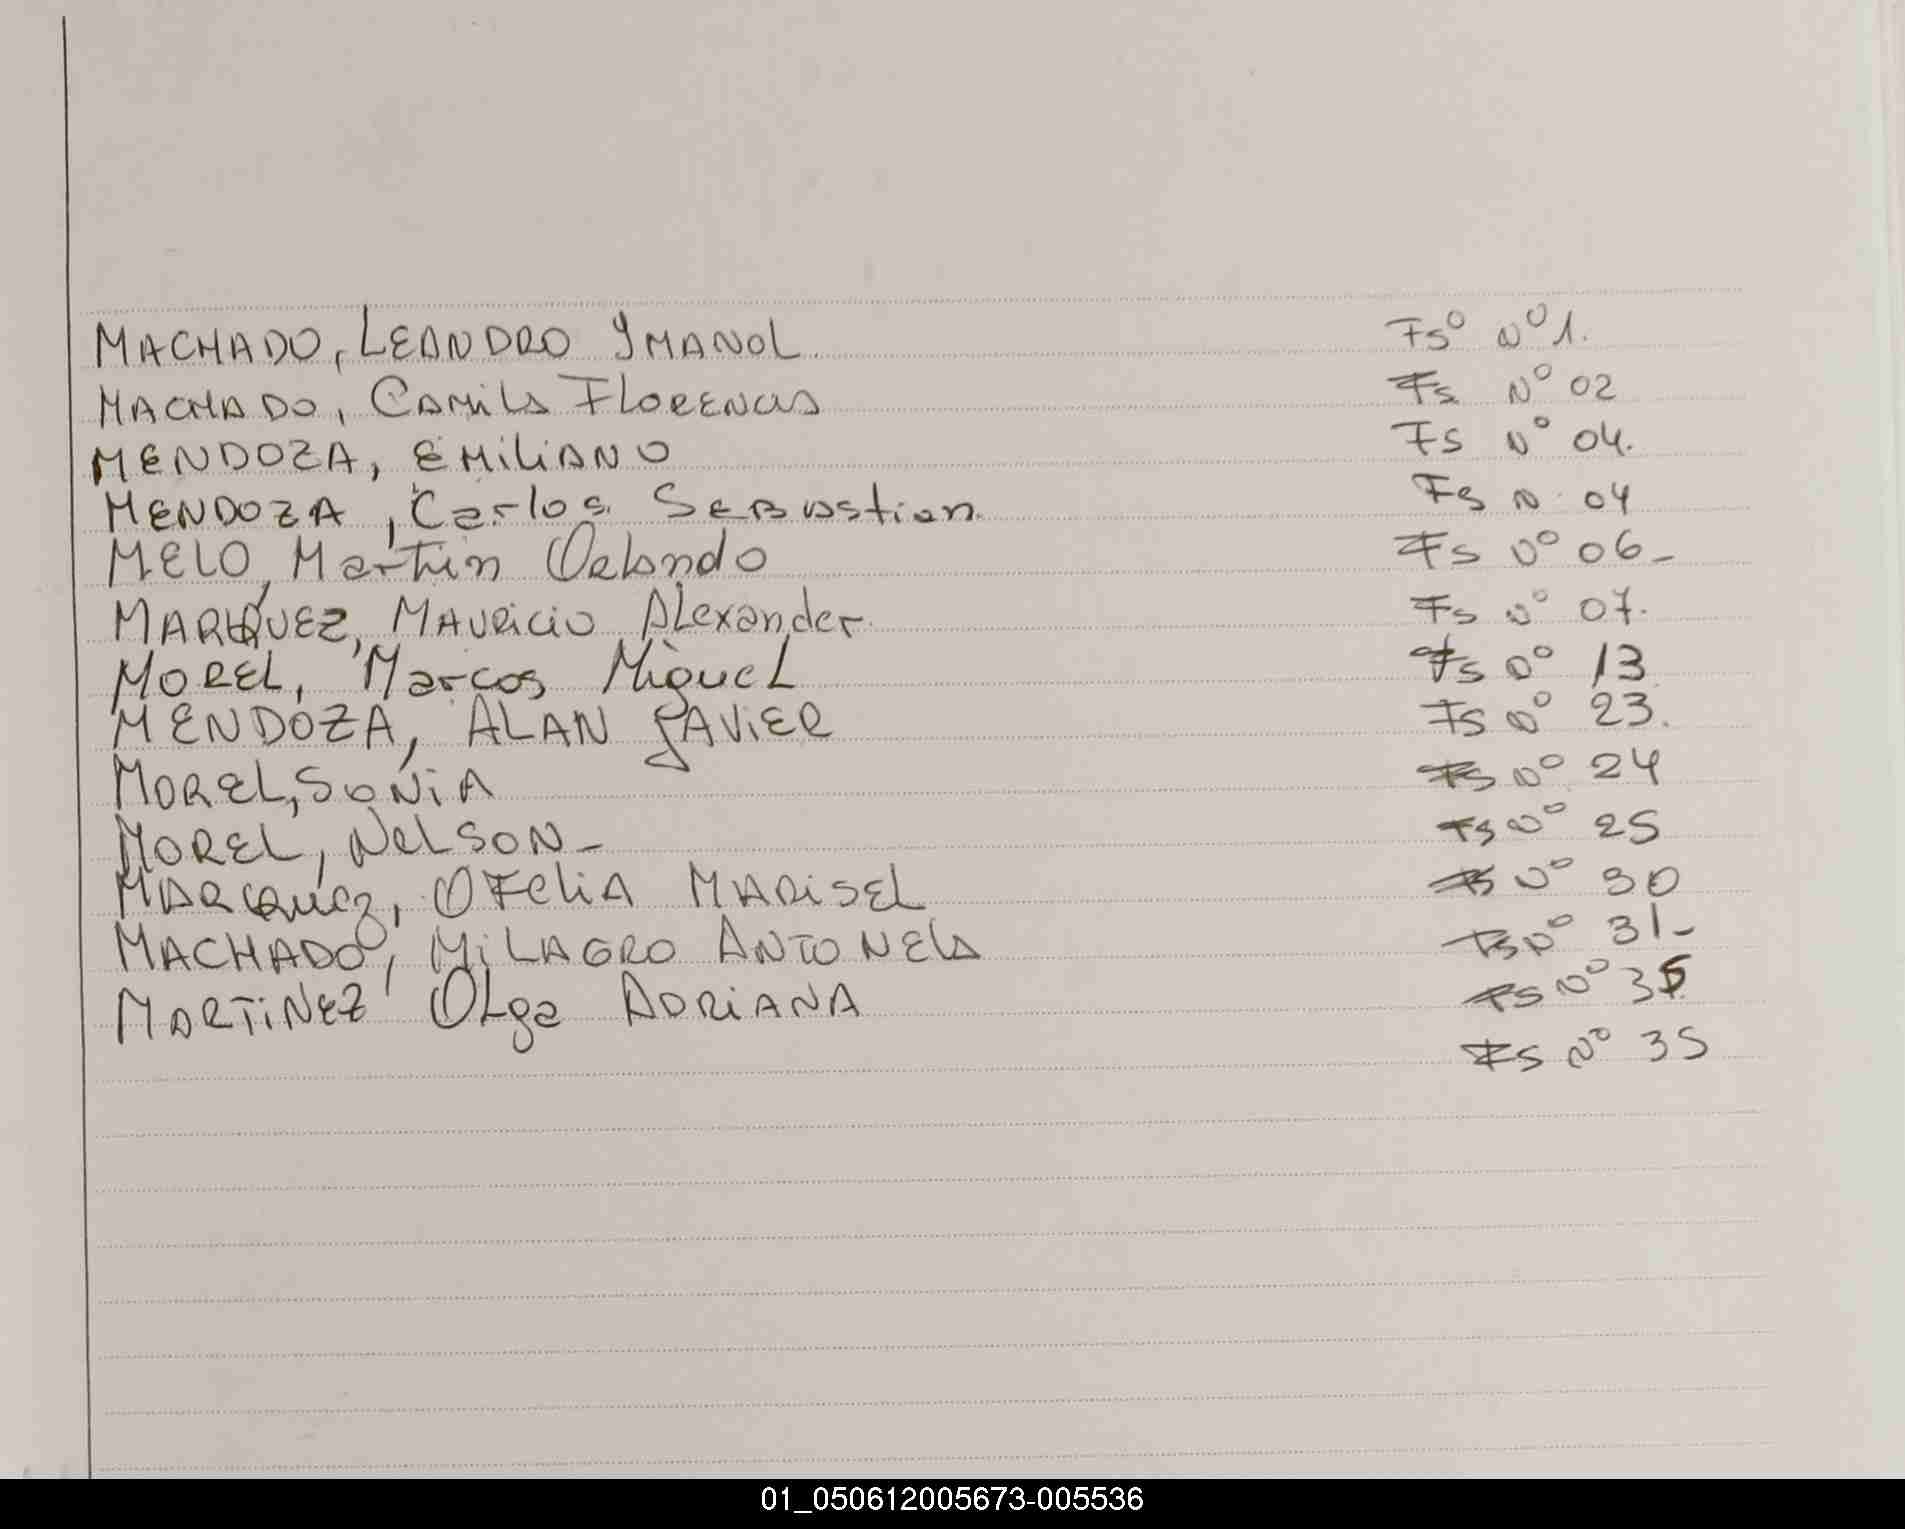 MACHADO, LEANDRO YMANOL Fsº Nº 1.
MACHADO, Camila FLORENCIA Fs Nº 02
MENDOZA, EMILIANO Fs Nº 04.
MENDOZA, Carlos SEBASTIAN Fs N. 04
MELO, Martin Orlando Fs Nº 06-
MARQUEZ, MAURICIO ALexander Fs Nº 07.
MOREL, Marcos MigueL Fs Nº 13
MENDOZA, ALAN JAVIER Fs Nº 23.
MOREL, SONIA Fs Nº 24
MOREL, NELSON- Fs Nº 25
MARQUEZ, OFELIA MARISEL Fs Nº 30
MACHADO, MILAGRO ANTONELA Fs Nº 31-
MARTINEZ OLga ADRIANA Fs Nº 35
Fs Nº 35
01_050612005673-005536